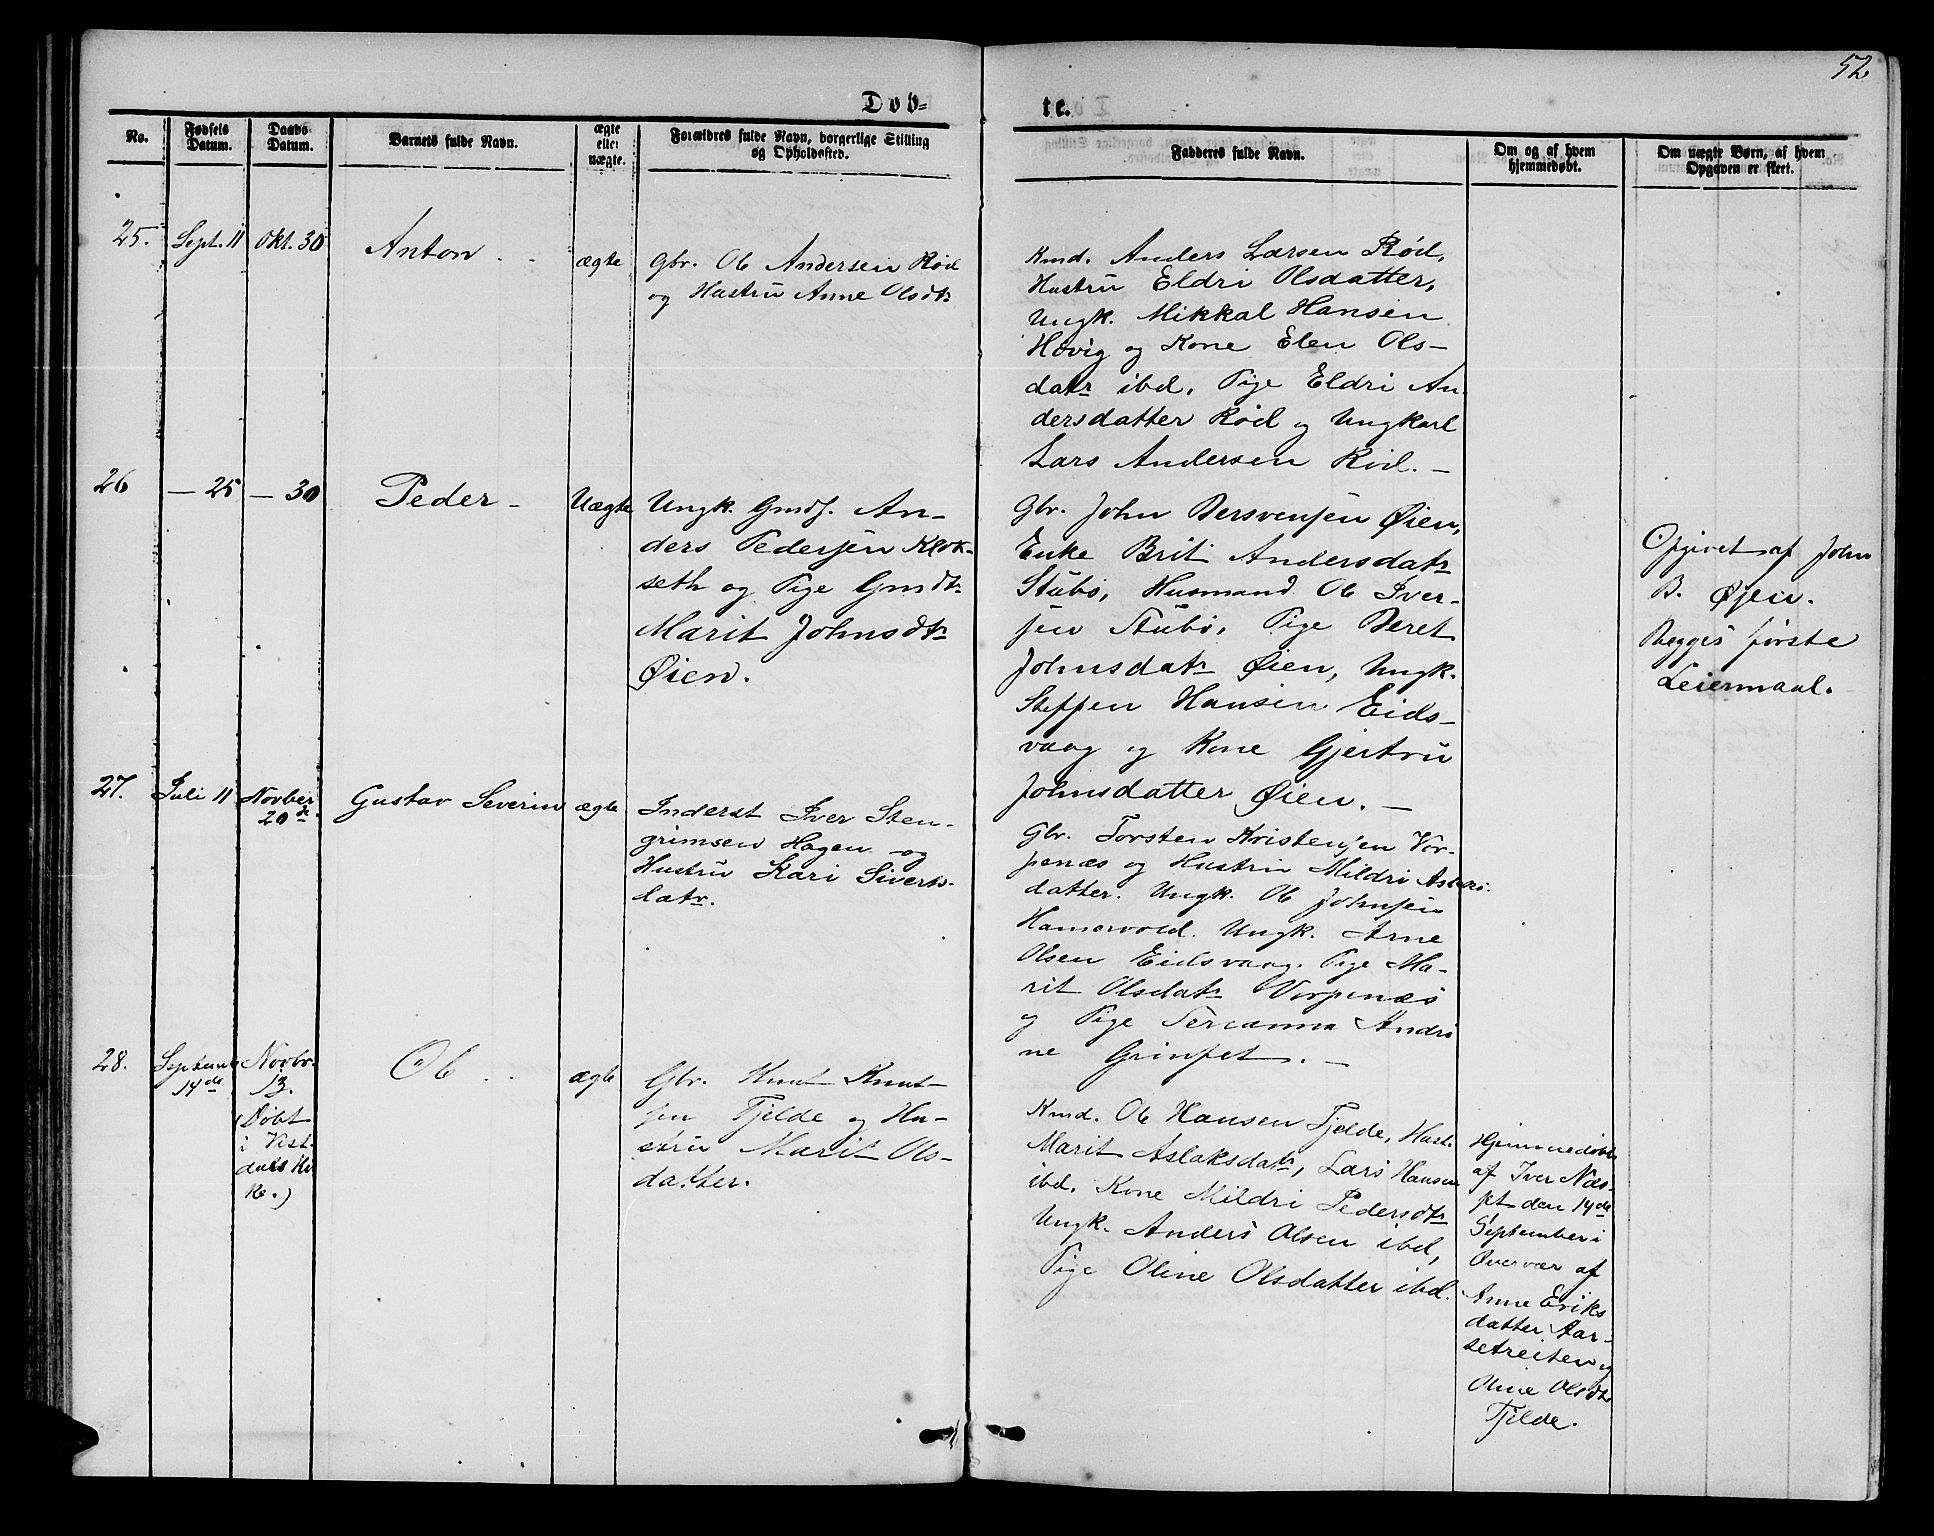 52
Døb=
te.
No.
Fødsels
Datum.
Daabs
Datum.
Barnets fulde Navn.
ægte
eller
uægte.
Forældres fulde Navn, borgerlige Stilling
og Opholdssted.
Fadderes fulde Navn.
Om og af hvem
hjemmedøbt.
Om uægte Børn, af hvem
Opgaven er skeet.
25.
Sept. 11
Okt. 30
Anton
ægte
Gbr. Ole Andersen Rød
og Hustru Anne Olsdtr
Kmd. Anders Larsen Rød,
Hustru Eldri Olsdatter,
Ungk. Mikkal Hansen
Hovig og Kone Elen Ols-
datr ibd. Pige Eldri An
dersdatter Rød og Ungkarl
Lars Andersen Rød. -
26
- 25
- 30
Peder -
Uægte
Ungk. Gmdf. An-
ders Pedersen Klok-
seth og Pige Gmdtr
Marit Johnsdtr
Øien.
Gbr. John Bersvensen Øien,
Enke Brit Andersdatr
Stubø, Husmand Ole Iver-
sen Stubø, Pige Beret
Johnsdatr Øien, Ungk.
Steffen Hansen Eids-
vaag og Kone Gjertru
Johnsdatter Øien. -
Opgivet af John
B. Øjen.
Begges første
Leiermaal.
27.
Juli 11
Novber
20de
Gustav Severin
ægte
Inderst Iver Sten-
grimsen Hagen og
Hustru Kari Siverts-
datr.
Gbr. Torsten Kristensen Vor-
penæs og Hustru Mildri
datter. Ungk. Ole Johnsen
Hamervold. Ungk. Arne
Olsen Eidsvaag. Pige Ma-
rit Olsdatr Vorpenæs
og Pige Andri
ne Grinset. -
28.
Septembr
14de
Novbr.
13.
(Døbt
i Vist-
dals Kir
ke.)
Ole
ægte
Gbr. Knut Knut-
sen Tjelde og Hu-
stru Marit Ols-
datter.
Kmd. Ole Hansen Tjelde, Hust.
Marit Aslaksdatr, Lars Hansen
ibd. Kone Mildri Pedersdtr
Ungk. Anders Olsen ibd,
Pige Oline Olsdatter ibd.
Hjemmedøbt
af Iver Næs-
set den 14de
September i
Overvær af
Anne Eriks
datter Aar-
setreiten og
Oline Olsdtr
Tjelde.